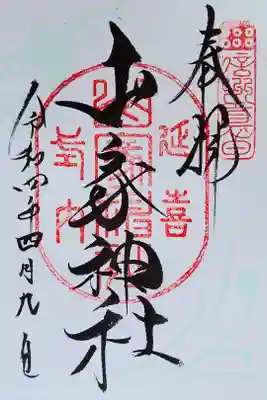 奉拝
延喜
山家神社
式内
令和四年四月九日